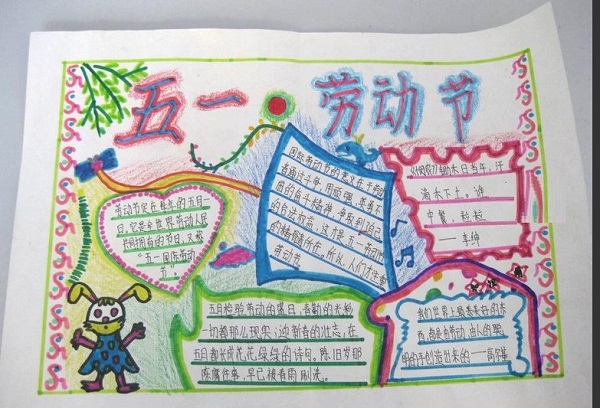 五一 劳动节
劳动节定在每年的五月一
日。它是全世界劳动人民
共同拥有的节日。又称
“五一国际劳动
节”
国际劳动节的意义在于劳动
者通过斗争,用顽强、英勇不
屈的奋斗精神,争取到自己
的合法权益。这才是五一劳动节
的精髓所在。所以,人们才
劳动节
《悯农》锄禾日当午,汗
滴禾下土。谁
中餐,粒粒
——李绅
五月检验劳动的爆日,春勤的光彩
一切都那么现实;迎新春的壮志,在
五月都长成花花绿绿的诗句。陈旧岁那
陈腐往事,早已被春雨刷洗。
我们世界上最美好的东
西,都是由劳动、由人的聪
明的手创造出来的——高尔基